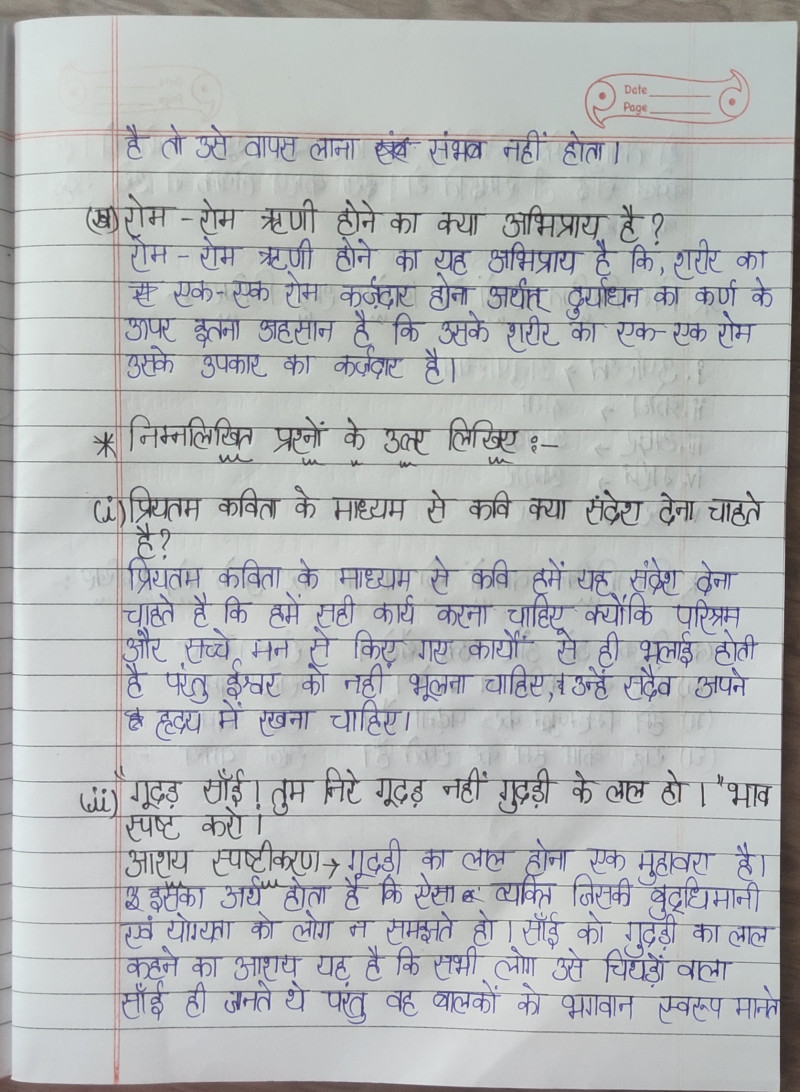 Date
Page
है तो उसे वापस लाना संभव नहीं होता।
(ख) रोम - रोम ऋणी होने का क्या अभिप्राय है ?
रोम - रोम ऋणी होने का यह अभिप्राय है कि, शरीर का
एक-एक रोम कर्ज़दार होना अर्थात् दुर्योधन का कर्ण के
ऊपर इतना अहसान है कि उसके शरीर का एक-एक रोम
उसके उपकार का कर्ज़दार है।
* निम्नलिखित प्रश्नों के उत्तर लिखिए :-
(i) प्रियतम कविता के माध्यम से कवि क्या संदेश देना चाहते
है?
प्रियतम कविता के माध्यम से कवि हमें यह संदेश देना
चाहते है कि हमें सही कार्य करना चाहिए क्योंकि परिश्रम
और सच्चे मन से किए गए कार्यों से ही भलाई होती
है परंतु ईश्वर को नहीं भूलना चाहिए, उन्हें सदैव अपने
हृदय में रखना चाहिए।
(ii) "गूदड़ साँई! तुम निरे गूदड़ नहीं गुदड़ी के लाल हो।" भाव
स्पष्ट करो।
आशय स्पष्टीकरण → गूदड़ी का लाल होना एक मुहावरा है।
इसका अर्थ होता है कि ऐसा व्यक्ति जिसकी बुद्धिमानी
एवं योग्यता को लोग न समझते हो। साँई को गुदड़ी का लाल
कहने का आशय यह है कि सभी लोग उसे चिथड़ों वाला
साँई ही जनते थे परंतु वह बालकों को भगवान स्वरूप मानते